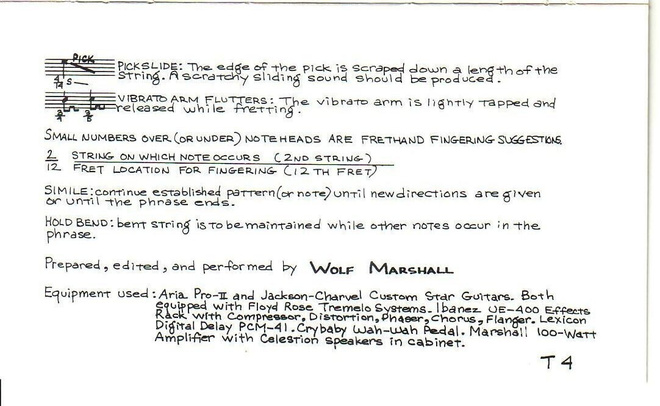 PICK
PICKSLIDE: The edge of the pick is scraped down a length of the
string. A scratchy sliding sound should be produced.
VIBRATO ARM FLUTTERS: The vibrato arm is lightly tapped and
released while fretting.
SMALL NUMBERS OVER (OR UNDER) NOTEHEADS ARE FRETHAND FINGERING SUGGESTIONS
2 STRING ON WHICH NOTE OCCURS (2ND STRING)
12 FRET LOCATION FOR FINGERING (12TH FRET)
SIMILE: continue established pattern (or note) until new directions are given
or until the phrase ends.
HOLD BEND: bent string is to be maintained while other notes occur in the
phrase.
Prepared, edited, and performed by WOLF MARSHALL
Equipment used: Aria Pro-II and Jackson-Charvel Custom Star Guitars. Both
equipped with Floyd Rose Tremelo Systems. Ibanez UE-400 Effects
Rack with Compressor, Distortion, Phaser, Chorus, Flanger. Lexicon
Digital Delay PCM-41. Crybaby Wah-Wah Pedal. Marshall 100-Watt
Amplifier with Celestion speakers in cabinet.
T4